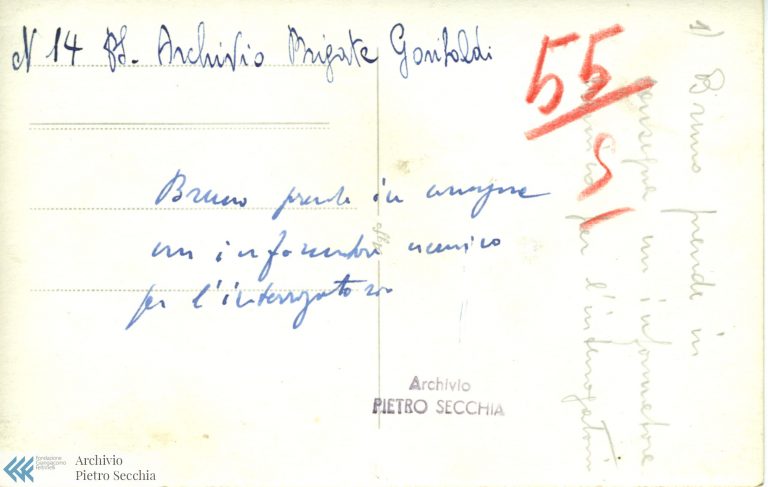 N 14 Ps. Archivio Brigate Garibaldi
55/91
Bruno prende in consegna
un informatore nemico
per l'interrogatorio
1) Bruno prende in
consegna un informatore
nemico per l'interrogatorio
Archivio
PIETRO SECCHIA
fondazione
Giangiacomo
Feltrinelli
Archivio
Pietro Secchia